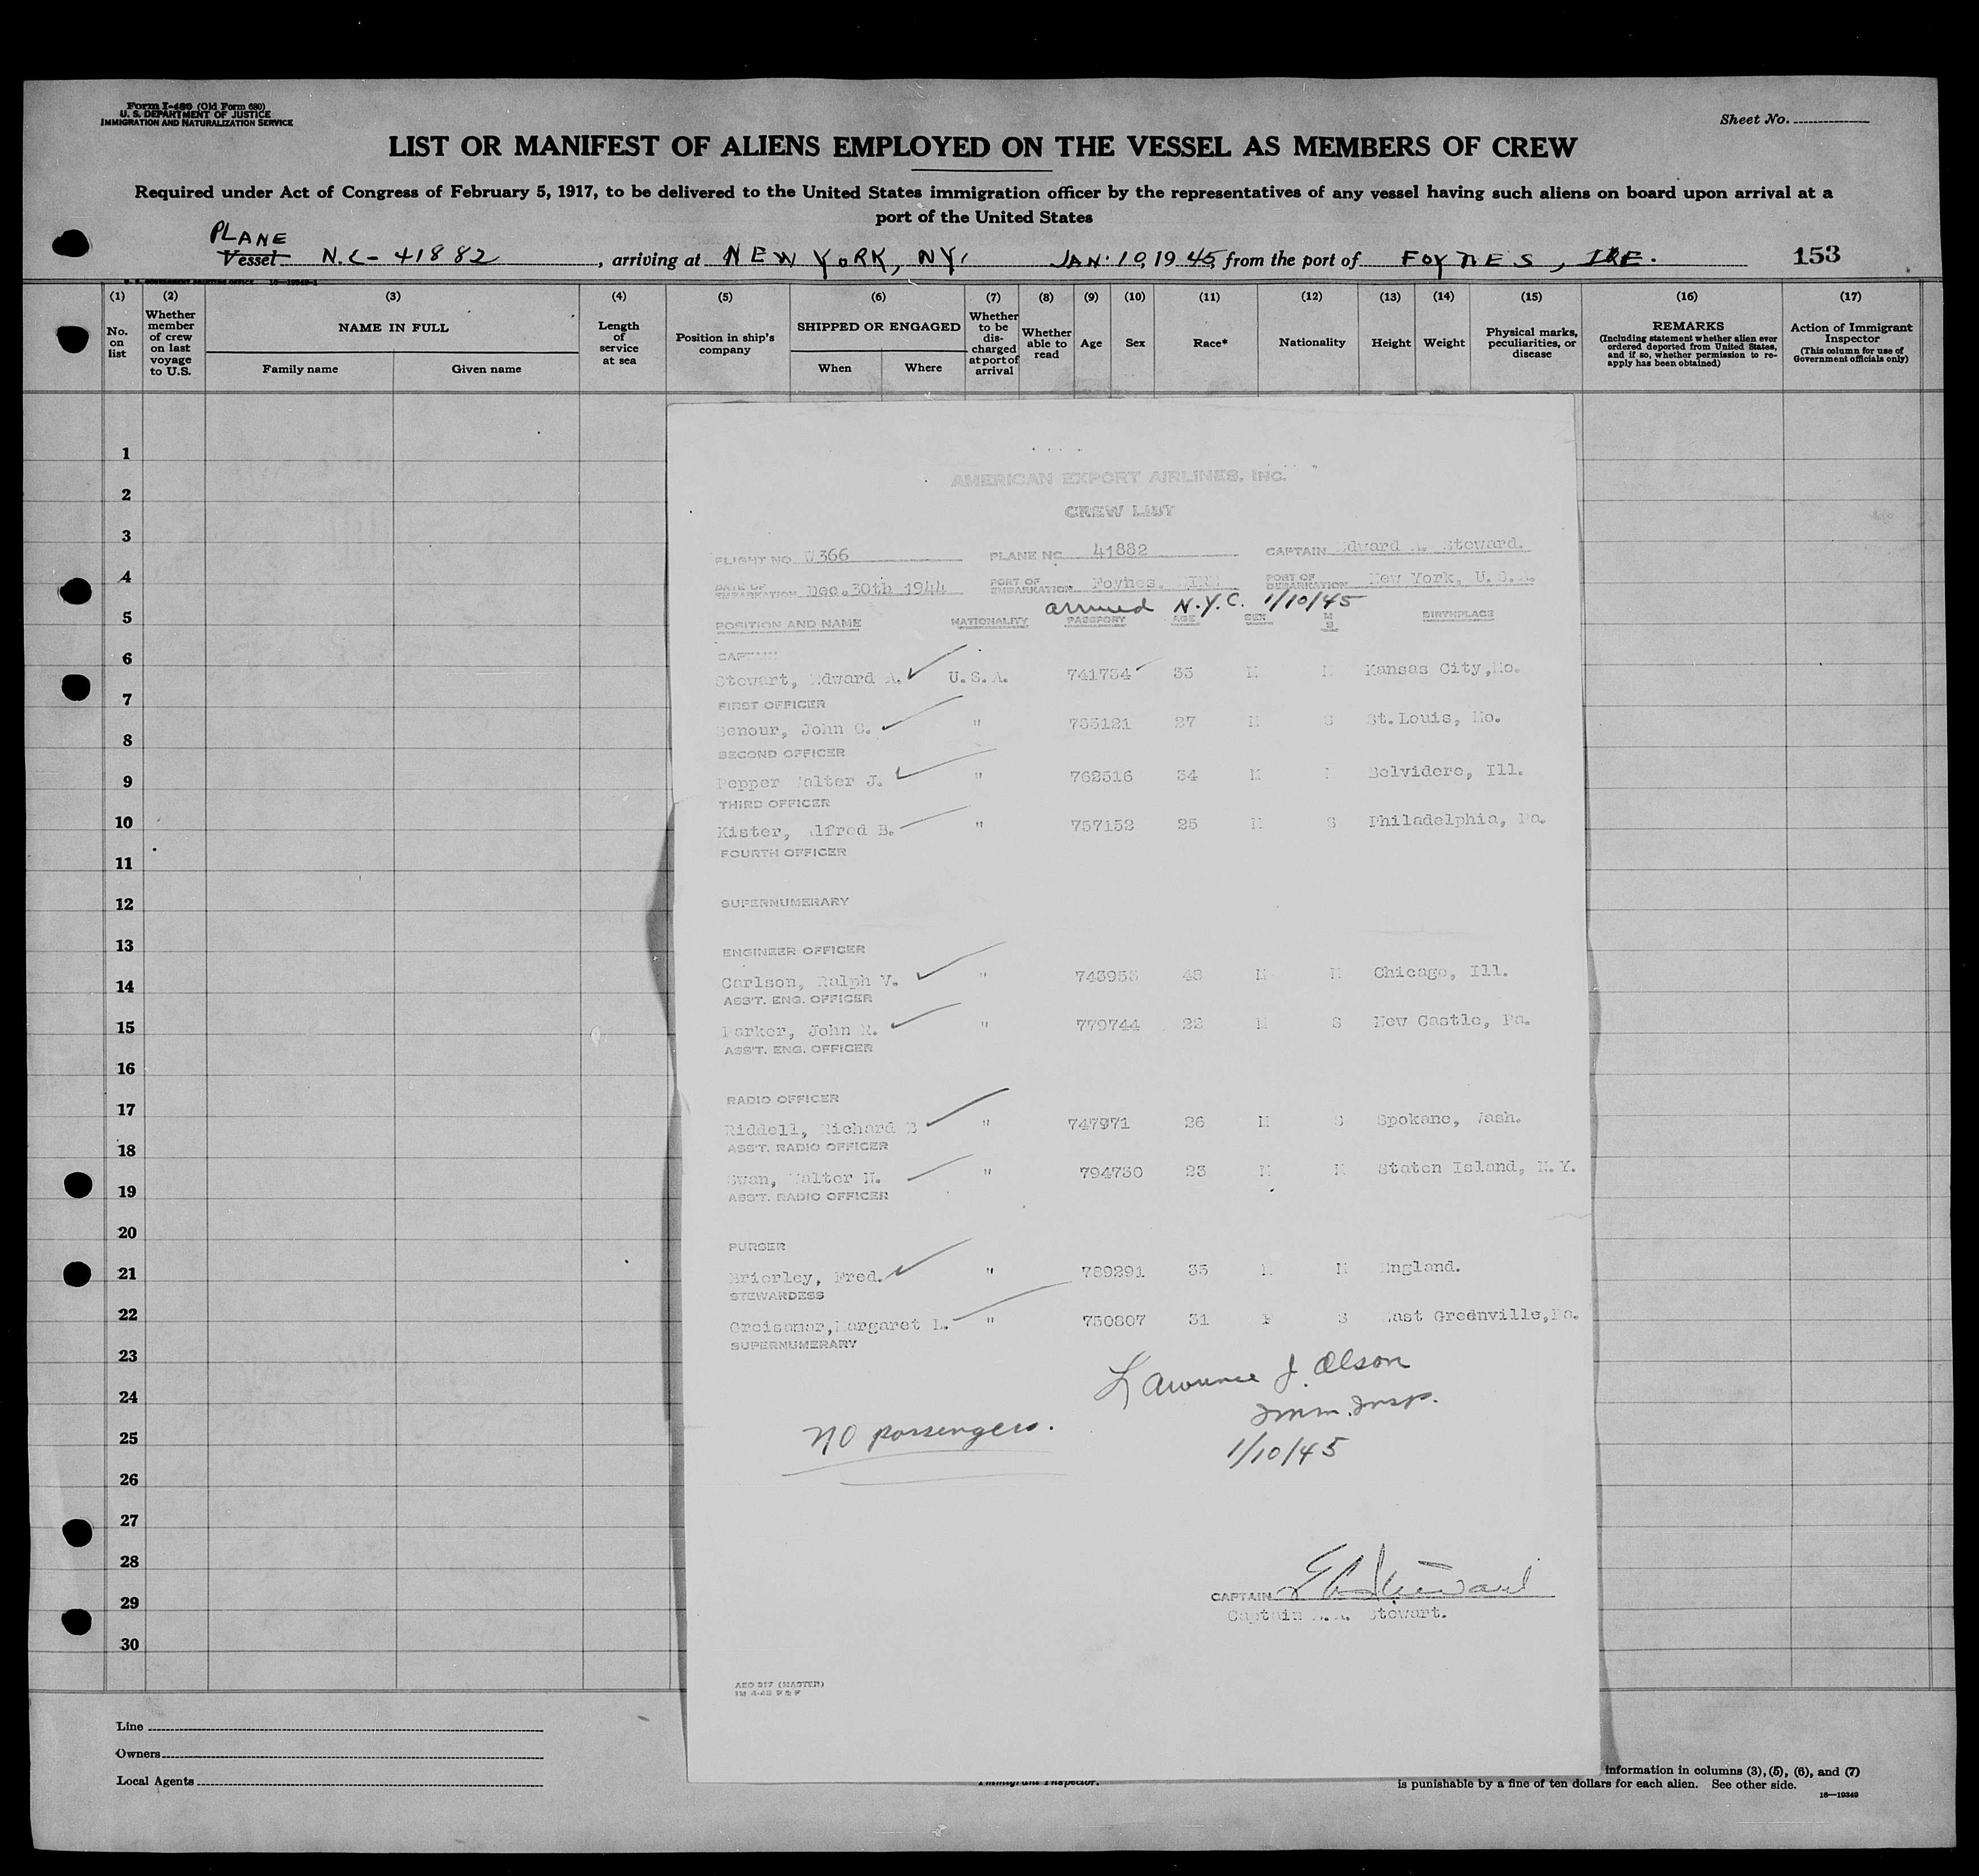 Form I-480 (Old Form 680)
U. S. DEPARTMENT OF JUSTICE
IMMIGRATION AND NATURALIZATION SERVICE
Sheet No.
LIST OR MANIFEST OF ALIENS EMPLOYED ON THE VESSEL AS MEMBERS OF CREW
Required under Act of Congress of February 5, 1917, to be delivered to the United States immigration officer by the representatives of any vessel having such aliens on board upon arrival at a
port of the United States
PLANE
Vessel N.C- 41882, arriving at NEW YORK, NY, JAN. 10, 1945, from the port of FOYNES, IRE. 153
(1) (2) (3) (4) (5) (6) (7) (8) (9) (10) (11) (12) (13) (14) (15) (16) (17)
No. on list
Whether member of crew on last voyage to U.S.
NAME IN FULL
Family name Given name
Length of service at sea
Position in ship's company
SHIPPED OR ENGAGED
When Where
Whether to be discharged at port of arrival
Whether able to read
Age
Sex
Race*
Nationality
Height
Weight
Physical marks, peculiarities, or disease
REMARKS
(Including statement whether alien ever ordered deported from United States, and if so, whether permission to re-apply has been obtained)
Action of Immigrant Inspector
(This column for use of Government officials only)
1
2
3
4
5
6
7
8
9
10
11
12
13
14
15
16
17
18
19
20
21
22
23
24
25
26
27
28
29
30
AMERICAN EXPORT AIRLINES, INC.
CREW LIST
FLIGHT NO. W366 PLANE NO. 41882 CAPTAIN Edward A. Steward.
DATE OF EMBARKATION Dec.30th 1944 PORT OF EMBARKATION Foynes, EIRE PORT OF DEBARKATION New York, U.S.A.
arrived N.Y.C. 1/10/45
POSITION AND NAME NATIONALITY PASSPORT AGE SEX M S BIRTHPLACE
CAPTAIN
Stewart, Edward A. U.S.A. 741734 35 M M Kansas City,Mo.
FIRST OFFICER
Senour, John C. " 735121 27 M S St.Louis, Mo.
SECOND OFFICER
Pepper Walter J. " 762516 34 M M Belvidere, Ill.
THIRD OFFICER
Kister, Alfred B. " 757152 25 M S Philadelphia, Pa.
FOURTH OFFICER
SUPERNUMERARY
ENGINEER OFFICER
Carlson, Ralph V. " 743953 48 M M Chicago, Ill.
ASS'T. ENG. OFFICER
Parker, John R. " 779744 22 M S New Castle, Pa.
ASS'T. ENG. OFFICER
RADIO OFFICER
Riddell, Richard B " 747971 26 M S Spokane, Wash.
ASS'T. RADIO OFFICER
Swan, Walter H. " 794730 23 M M Staten Island, N.Y.
ASS'T. RADIO OFFICER
PURSER
Brierley, Fred. " 789291 35 M M England.
STEWARDESS
Greisamar,Margaret L. " 750807 31 F S East Greenville,Pa.
SUPERNUMERARY
Lawrence J. Olson
Imm. Insp.
1/10/45
No passengers.
CAPTAIN E A Steward
Captain E.A. Stewart.
AEO 317 (MASTER)
Line
Owners
Local Agents
Immigrant Inspector.
information in columns (3), (5), (6), and (7)
is punishable by a fine of ten dollars for each alien. See other side.
16—19349